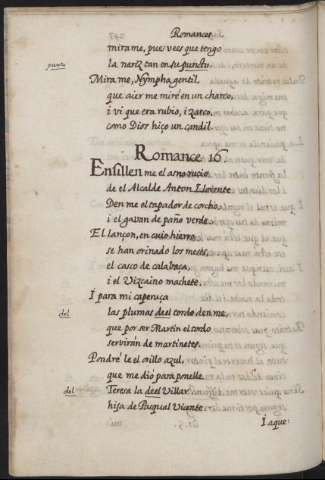 Romances
mirame, pues vees que tengo
la nariz tan en su puncto.
punto
Mirame, Nympha gentil,
que aier me miré en un charco,
i vi que era rubio, i zarco,
como Dios hiço un candil.
Romance 16
Ensillenme el asno rucio
de el Alcalde Anton Llorente
Denme el tapador de corcho,
i el gaban de paño verde.
El lançon, en cuio hierro
se han orinado los meses,
el casco de calabaça,
i el Vizcaino machete.
I para mi caperuça
las plumas de el tordo denme,
del
que por ser Martin el tordo
servirán de martinetes.
Pondré le el orillo azul,
que me dió para ponelle
Teresa la de el Villar
del
hija de Pasqual Vicente.
I aque